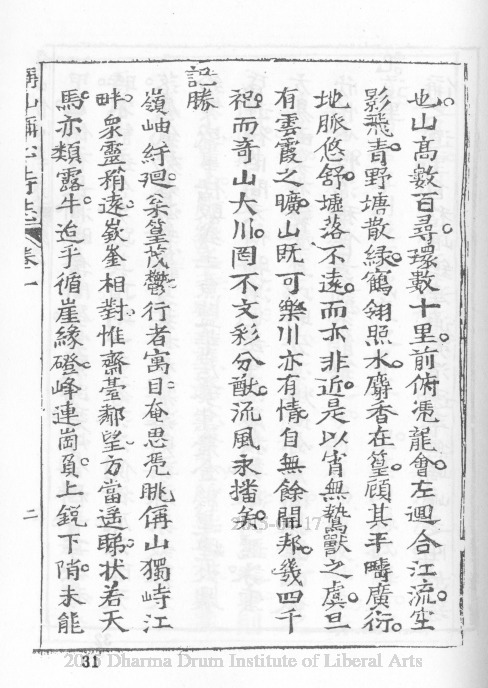 也山高數百尋環數十里前俯憑龍會左迴合江流空
影飛青野塘散綠鶴翎照水麝香在篁顧其平疇廣衍
地脈悠舒墟落不遠而亦非近是以宵無鷙獸之虞旦
有雲霞之曠山既可樂川亦有情自無餘開邦幾四千
祀而奇山大川罔不文彩分猷流風永播矣
記勝
嶺岫紆迴采篁茂鬱行者寓目奄思凭眺偁山獨峙江
畔衆靈稍遠嶔崟相對惟齋臺鄰望方當遥睇狀若天
馬亦類露牛迨乎循崖緣磴峰連崗負上銳下隋未能
偁山偁心寺志 卷一
二
31
2015 Dharma Drum Institute of Liberal Arts